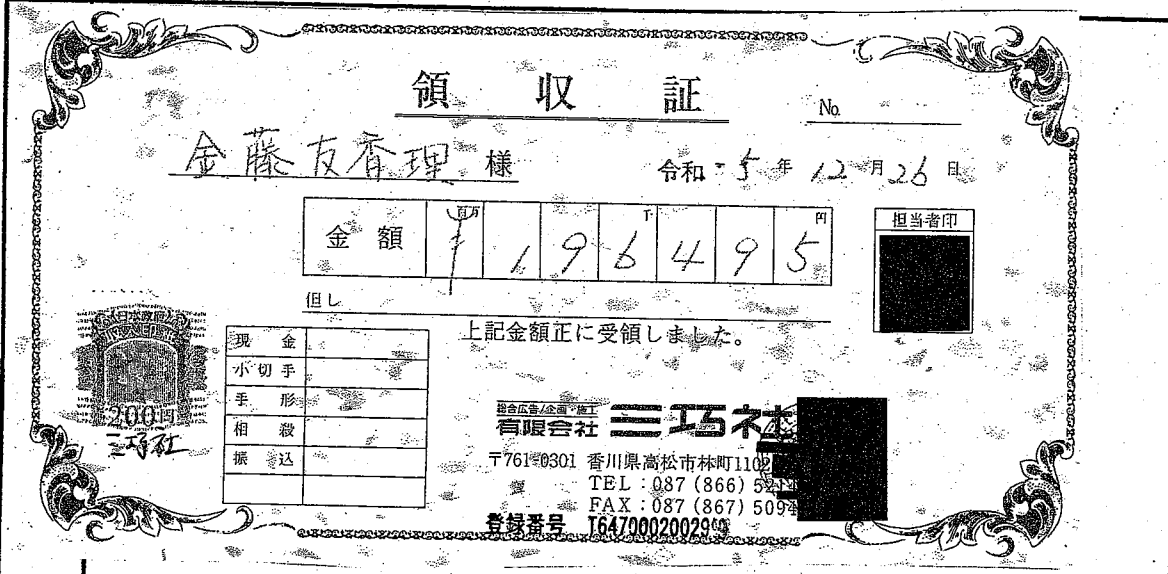 領収証
No.
金藤友香理 様
令和 5年 12月 26日
金額 百万 千 円
¥ 1 9 6 4 9 5
担当者印
但し
上記金額正に受領しました。
日本政府
200円
三巧社
現金
小切手
手形
相殺
振込
総合広告/企画・施工
有限会社 三巧社
〒761-0301 香川県高松市林町1102
TEL:087(866)52
FAX:087(867)509
登録番号 T64700020029